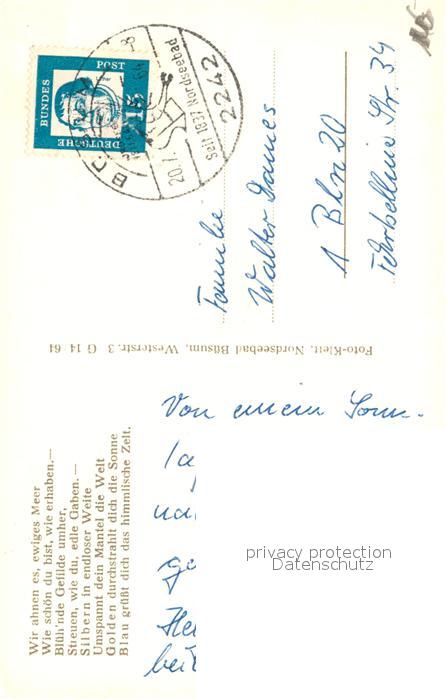 DEUTSCHE
BUNDES
POST
15
2242
Seit 1837 Nordseebad
20.7.
Familie
Walter Dames
1 Bln 20
Fehrbelliner Str. 34
Foto-Klett, Nordseebad Büsum, Westerstr. 3 G 14/64
Wir ahnen es, ewiges Meer
Wie schön du bist, wie erhaben.—
Blüh'nde Gefilde umher,
Streuen, wie du, edle Gaben.—
Silbern in endloser Weite
Umspannt dein Mantel die Welt
Golden durchstrahlt dich die Sonne
Blau grüßt dich das himmlische Zelt.
Von einem Sonn-
privacy protection
Datenschutz